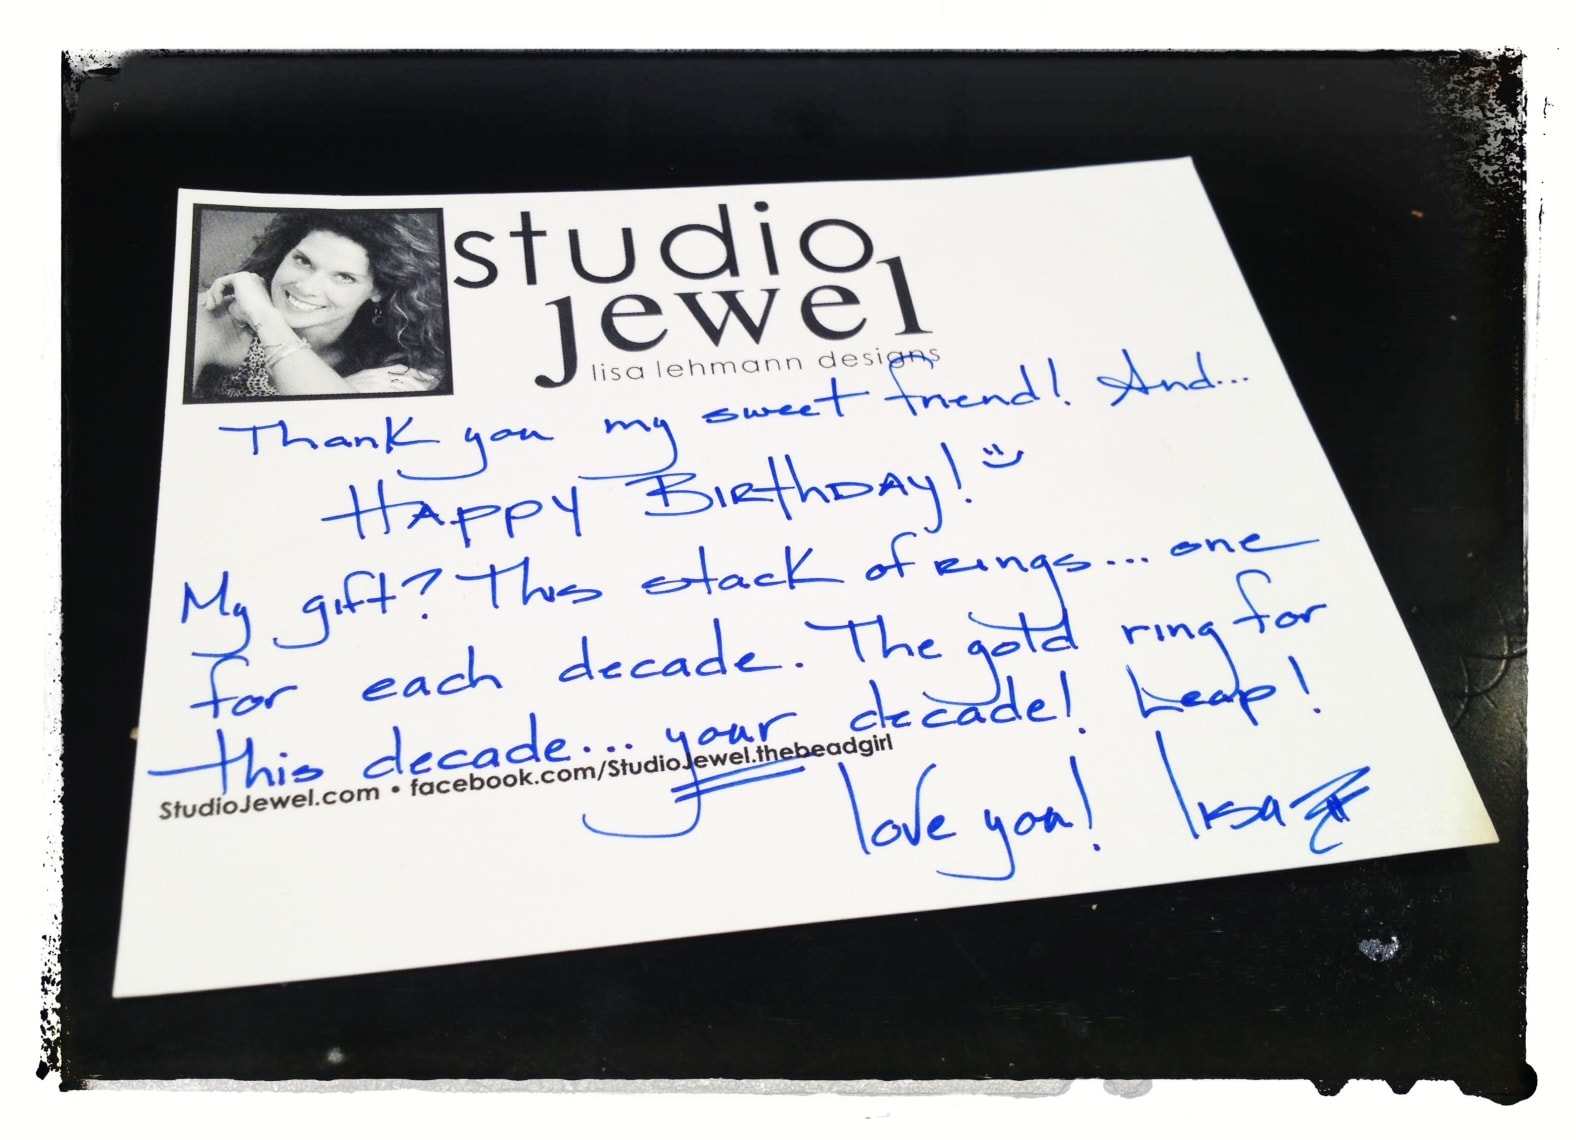 studio
jewel
lisa lehmann designs
Thank you my sweet friend! And...
HAPPY BIRthDAY! :)
My gift? This stack of Rings... one
for each decade. The gold ring for
this decade... your decade! Leap!
StudioJewel.com • facebook.com/StudioJewel.thebeadgirl
love you! lisa